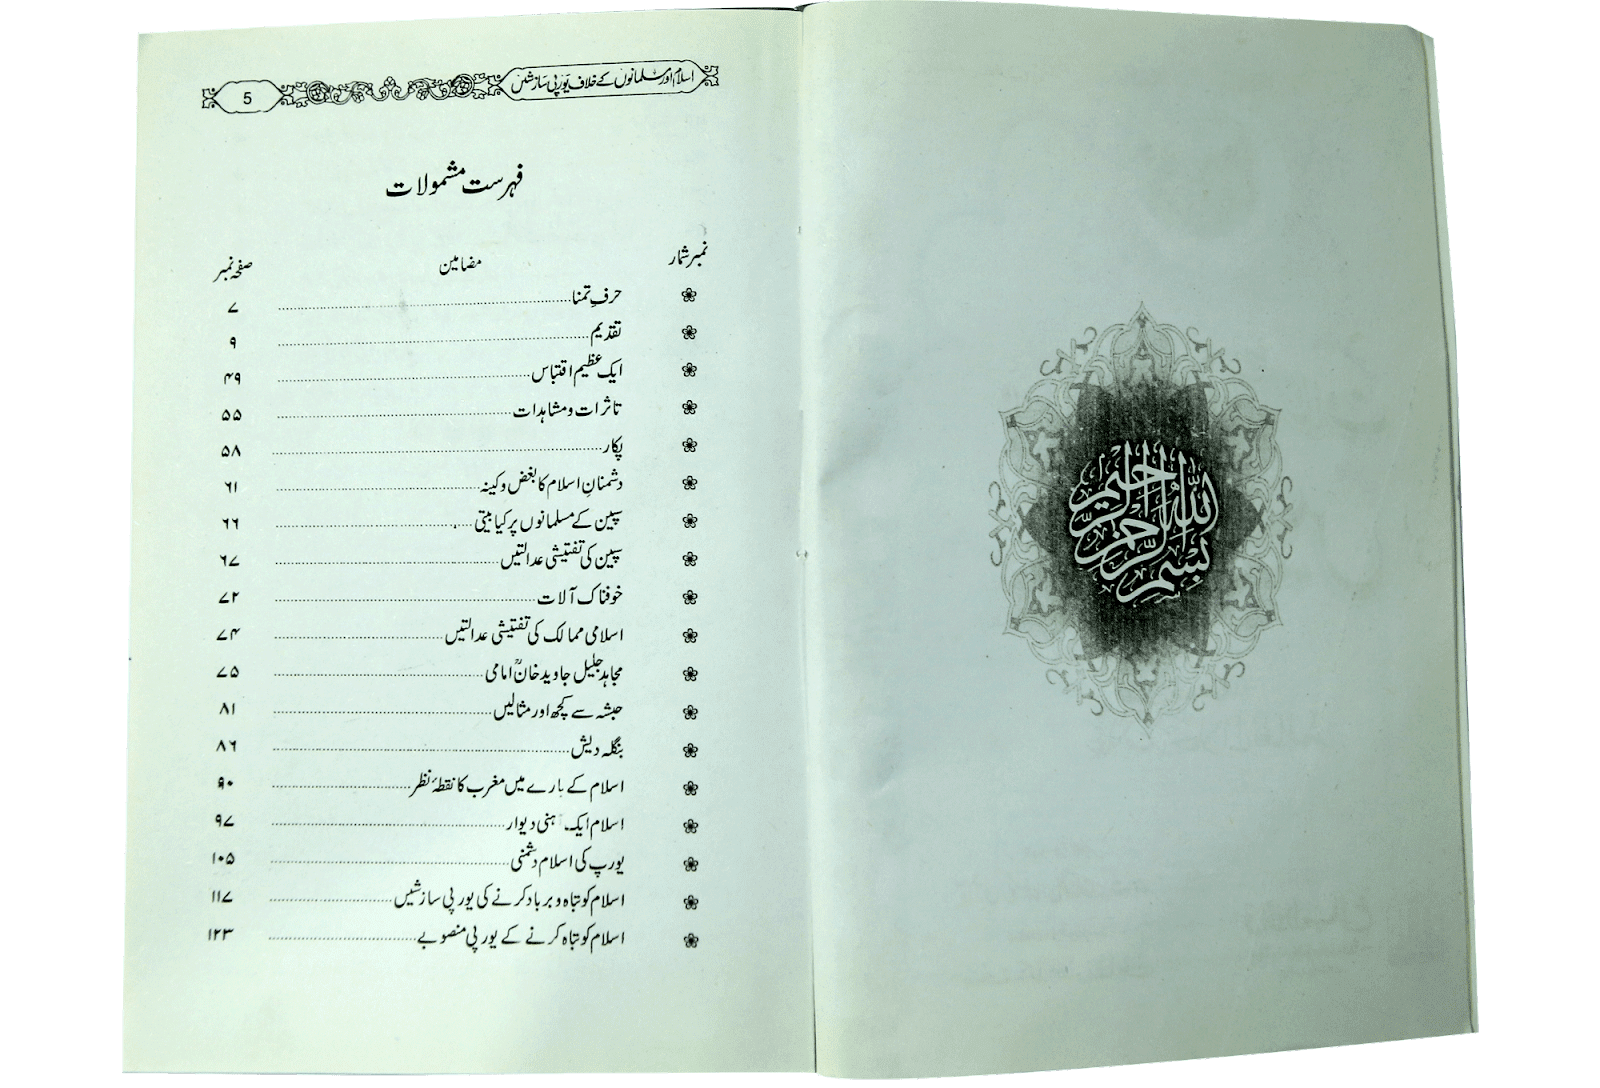 بسم الله الرحمن الرحيم
اسلام اور مسلمانوں کے خلاف یورپی سازشیں 5
فہرست مشمولات
نمبر شمار مضامین صفحہ نمبر
حرفِ تمنا ۷
تقدیم ۹
ایک عظیم اقتباس ۴۹
تاثرات و مشاہدات ۵۵
پکار ۵۸
دشمنانِ اسلام کا بغض و کینہ ۶۱
سپین کے مسلمانوں پر کیا بیتی ۶۶
سپین کی تفتیشی عدالتیں ۶۷
خوفناک آلات ۷۲
اسلامی ممالک کی تفتیشی عدالتیں ۷۴
مجاہد جلیل جاوید خانؒ امامی ۷۵
حبشہ سے کچھ اور مثالیں ۸۱
بنگلہ دیش ۸۶
اسلام کے بارے میں مغرب کا نقطۂ نظر ۹۰
اسلام ایک آہنی دیوار ۹۷
یورپ کی اسلام دشمنی ۱۰۵
اسلام کو تباہ و برباد کرنے کی یورپی سازشیں ۱۱۷
اسلام کو تباہ کرنے کے یورپی منصوبے ۱۲۳